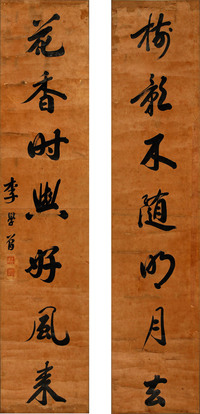 樹影不隨明月去
花香時與好風來
李學曾